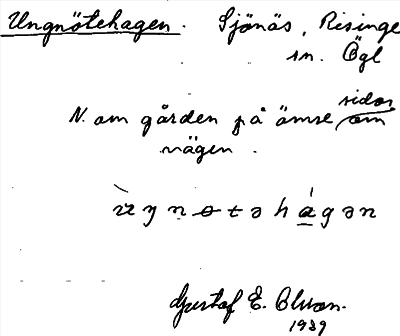 Ungnötehagen. Sjönäs, Risinge
sn. Ögl
N. om gården på ömse sidor om
vägen.
Gustaf E. Olsson.
1939